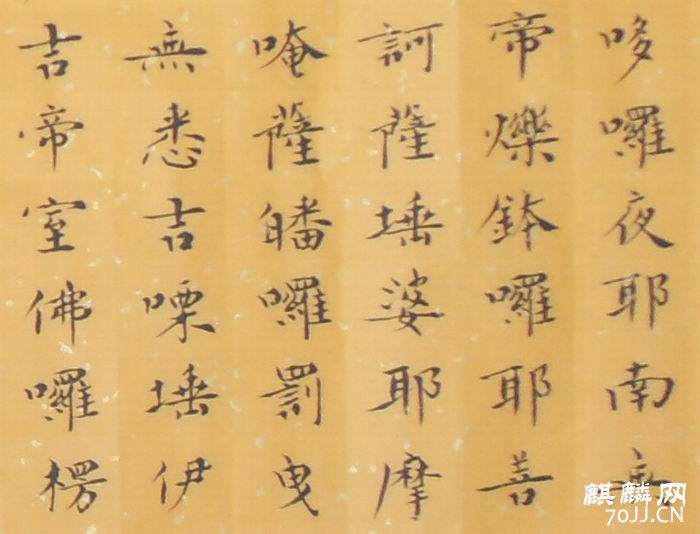 哆囉夜耶南
帝爍鉢囉耶菩
訶薩埵婆耶摩
唵薩皤囉罰曳
無悉吉嘌埵伊
吉帝室佛囉楞
麒麟网
70JJ.CN